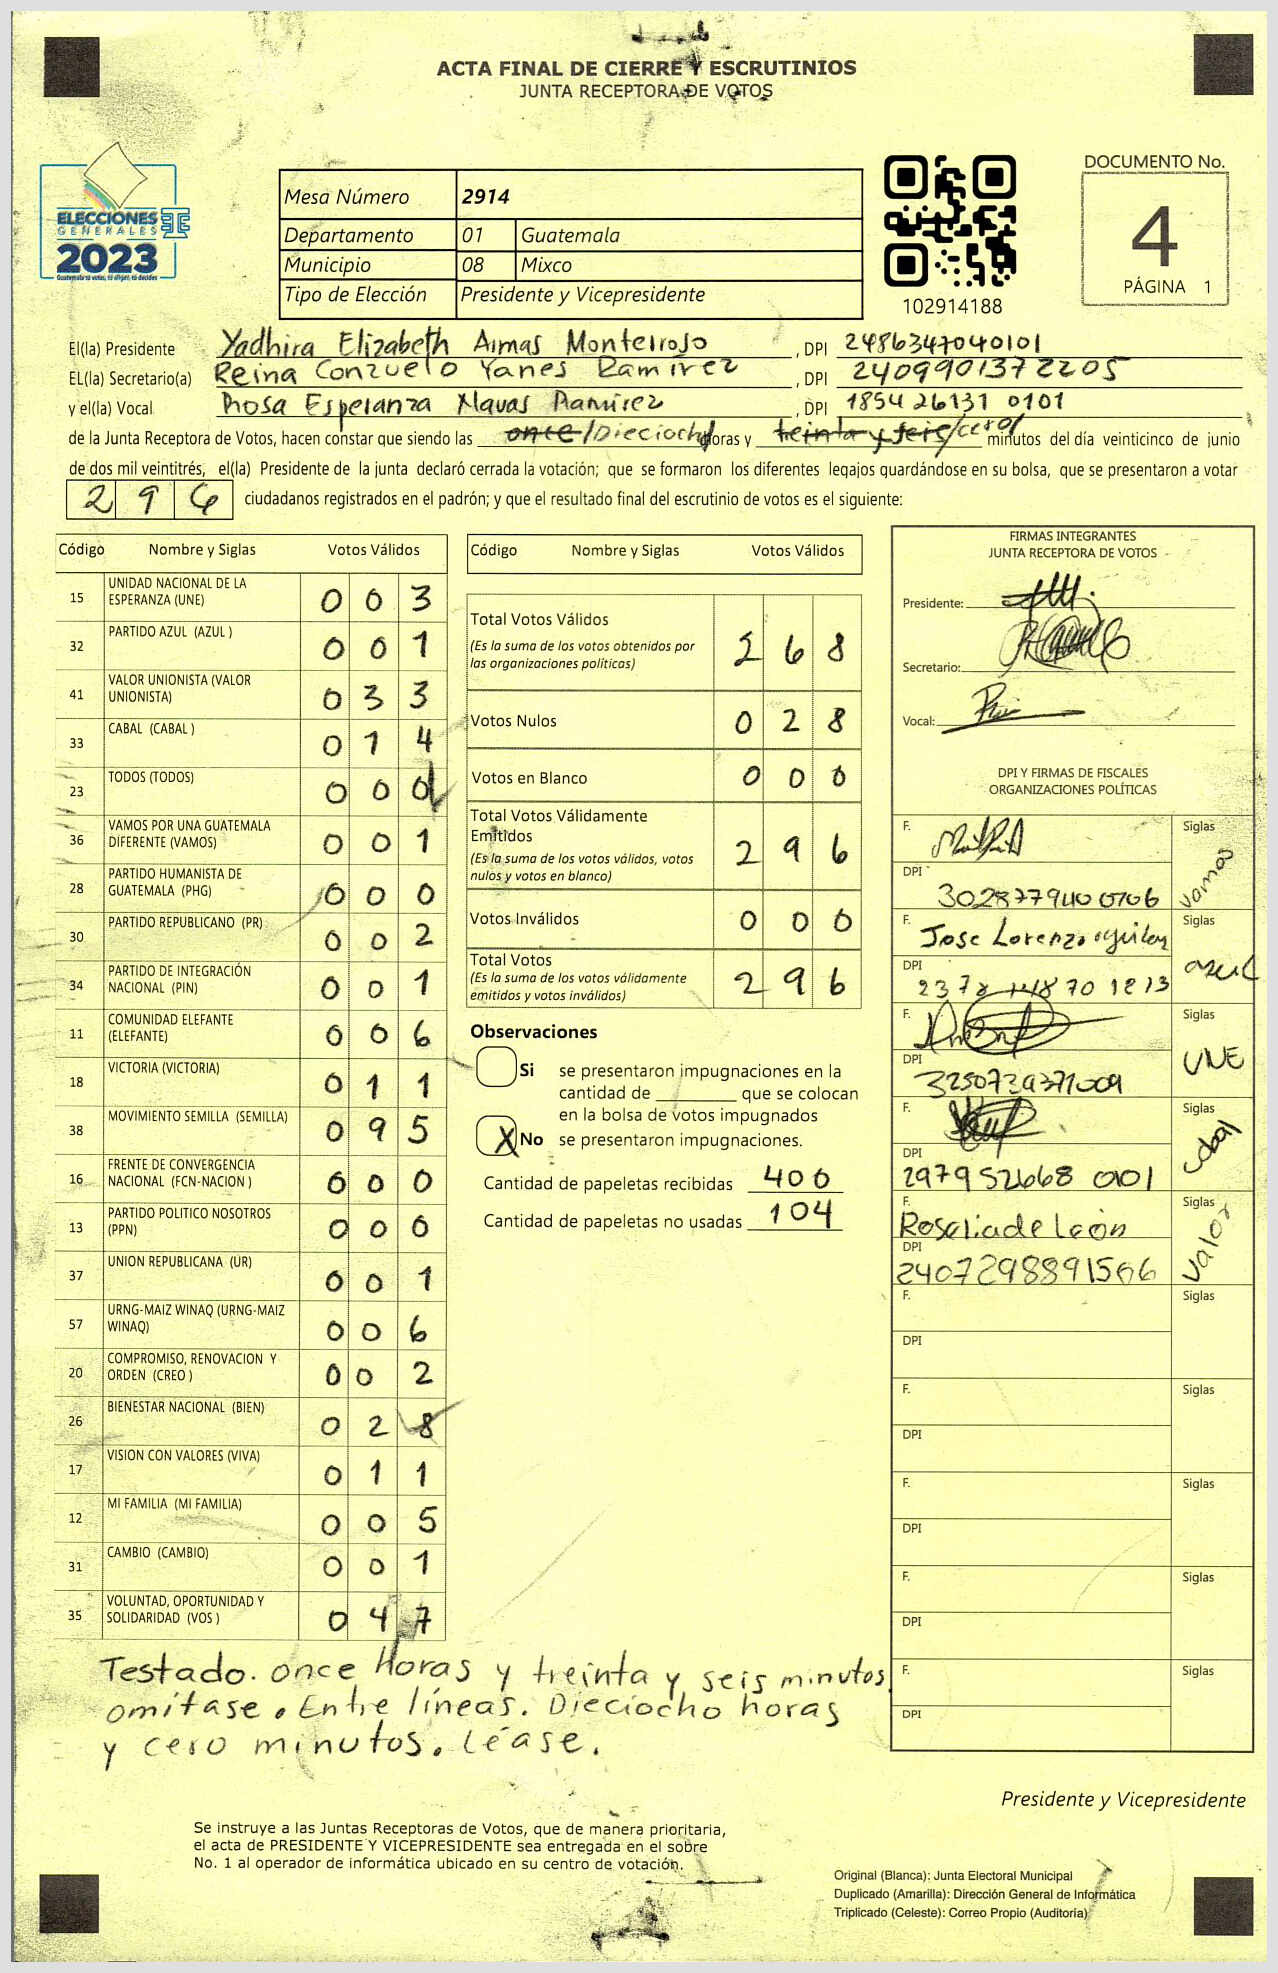 ACTA FINAL DE CIERRE Y ESCRUTINIOS
JUNTA RECEPTORA DE VOTOS
ELECCIONES
GENERALES
2023
Guatemala tú votas, tú eliges, tú decides
Mesa Número 2914
Departamento 01 Guatemala
Municipio 08 Mixco
Tipo de Elección Presidente y Vicepresidente
102914188
DOCUMENTO No.
4
PÁGINA 1
El(la) Presidente Yadhira Elizabeth Armas Monterroso , DPI 2486347040101
EL(la) Secretario(a) Reina Conzuelo Yanes Ramirez , DPI 2409901372205
y el(la) Vocal Rosa Esperanza Navas Ramirez , DPI 1854 26131 0101
de la Junta Receptora de Votos, hacen constar que siendo las once/Dieciocho horas y treinta y seis/cero/ minutos del día veinticinco de junio
de dos mil veintitrés, el(la) Presidente de la junta declaró cerrada la votación; que se formaron los diferentes legajos guardándose en su bolsa, que se presentaron a votar
296 ciudadanos registrados en el padrón; y que el resultado final del escrutinio de votos es el siguiente:
Código Nombre y Siglas Votos Válidos
15 UNIDAD NACIONAL DE LA ESPERANZA (UNE) 003
32 PARTIDO AZUL (AZUL ) 001
41 VALOR UNIONISTA (VALOR UNIONISTA) 033
33 CABAL (CABAL ) 014
23 TODOS (TODOS) 000
36 VAMOS POR UNA GUATEMALA DIFERENTE (VAMOS) 001
28 PARTIDO HUMANISTA DE GUATEMALA (PHG) 000
30 PARTIDO REPUBLICANO (PR) 002
34 PARTIDO DE INTEGRACIÓN NACIONAL (PIN) 001
11 COMUNIDAD ELEFANTE (ELEFANTE) 006
18 VICTORIA (VICTORIA) 011
38 MOVIMIENTO SEMILLA (SEMILLA) 095
16 FRENTE DE CONVERGENCIA NACIONAL (FCN-NACION ) 000
13 PARTIDO POLITICO NOSOTROS (PPN) 000
37 UNION REPUBLICANA (UR) 001
57 URNG-MAIZ WINAQ (URNG-MAIZ WINAQ) 006
20 COMPROMISO, RENOVACION Y ORDEN (CREO ) 002
26 BIENESTAR NACIONAL (BIEN) 028
17 VISION CON VALORES (VIVA) 011
12 MI FAMILIA (MI FAMILIA) 005
31 CAMBIO (CAMBIO) 001
35 VOLUNTAD, OPORTUNIDAD Y SOLIDARIDAD (VOS ) 047
Código Nombre y Siglas Votos Válidos
Total Votos Válidos 268
(Es la suma de los votos obtenidos por
las organizaciones políticas)
Votos Nulos 028
Votos en Blanco 000
Total Votos Válidamente
Emitidos 296
(Es la suma de los votos válidos, votos
nulos y votos en blanco)
Votos Inválidos 000
Total Votos 296
(Es la suma de los votos válidamente
emitidos y votos inválidos)
Observaciones
Si se presentaron impugnaciones en la
cantidad de ________ que se colocan
en la bolsa de votos impugnados
X No se presentaron impugnaciones.
Cantidad de papeletas recibidas 400
Cantidad de papeletas no usadas 104
FIRMAS INTEGRANTES
JUNTA RECEPTORA DE VOTOS
Presidente:
Secretario:
Vocal:
DPI Y FIRMAS DE FISCALES
ORGANIZACIONES POLÍTICAS
F. Siglas Vamos
DPI 302877940 0706
F. Jose Lorenzo aguilar Siglas azul
DPI
F. Siglas UNE
DPI 3250729371009
F. Siglas cabal
DPI 2979 52668 0101
F. Rosalia de León Siglas Valor
DPI 2407298891506
F. Siglas
DPI
F. Siglas
DPI
F. Siglas
DPI
F. Siglas
DPI
F. Siglas
DPI
Testado. once Horas y treinta y seis minutos
omítase. Entre líneas. Dieciocho horas
y cero minutos. Léase.
Presidente y Vicepresidente
Se instruye a las Juntas Receptoras de Votos, que de manera prioritaria,
el acta de PRESIDENTE Y VICEPRESIDENTE sea entregada en el sobre
No. 1 al operador de informática ubicado en su centro de votación.
Original (Blanca): Junta Electoral Municipal
Duplicado (Amarilla): Dirección General de Informática
Triplicado (Celeste): Correo Propio (Auditoría)